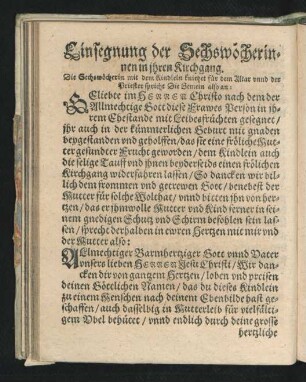 Einsegnung der Sechswöcherin-
nen in jhren Kirchgang.
Die Sechswöcherin mit dem Kindlein knihet für dem Altar vnnd der
Priester spricht Die Gemein also an:
GEliebte im HERREN Christo nach dem der
Allmechtige Gott diese Frawes Person in jh-
rem Ehestande mit Leibesfrüchten gesegnet/
jhr auch in der kümmerlichen Geburt mit gnaden
beygestanden vnd geholffen/ das sie eine frölicheMut-
ter gesundter Frucht geworden/ dem Kindlein auch
die selige Tauff vnd jhnen beyderseids einen frölichen
Kirchgang widerfahren lassen/ So dancken wir bil-
lich dem frommen vnd getrewen Gott/ benebest der
Mutter für solche Wolthat/ vnnd bitten jhn von her-
tzen/ das er jhmwolle Mutter vnd Kind ferner in sei-
nem gnedigen Schutz vnd Schirm befohlen sein las-
sen/ sprecht derhalben in ewren Hertzen mit mir vnd
der Mutter also:
ALlmechtiger Barmhertziger Gott vnnd Vater
vnsers lieben HERREN Jesu Christi/ Wir dan-
cken dir von gantzem Hertzen/ loben vnd preisen
deinen Göttlichen Namen/ das du dieses Kindlein
zu einem Menschen nach deinem Ebenbilde hast ge-
schaffen/ auch dasselbig in Mutterleib für vielfälti-
gem Vbel behütet/ vnnd endlich durch deine grosse
hertzliche